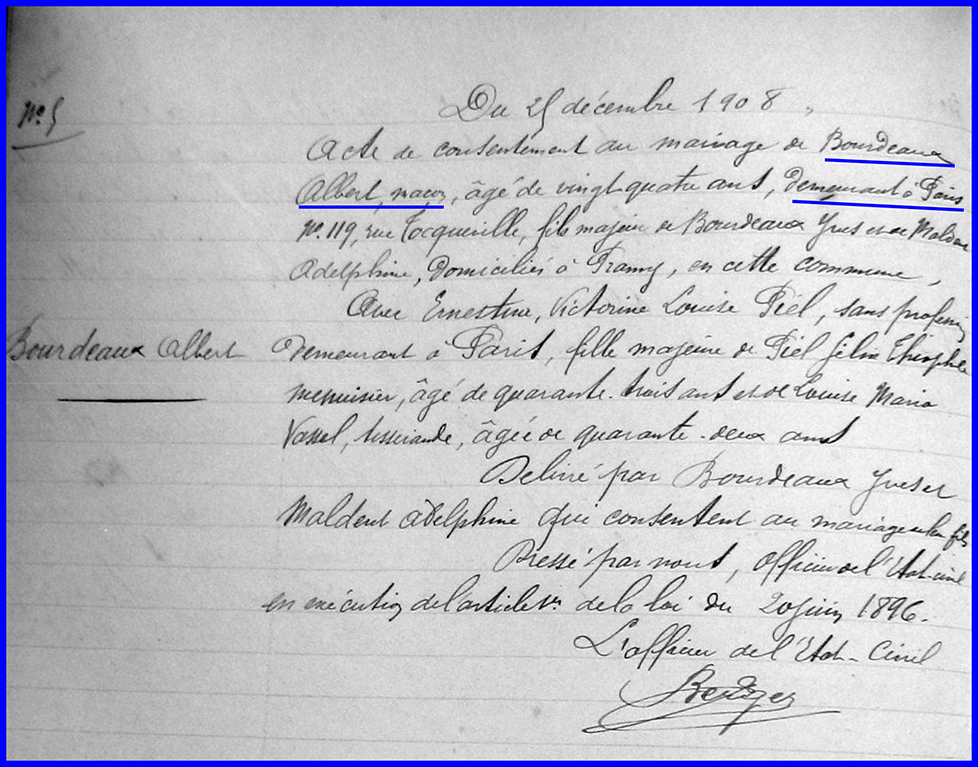 N° 5
Du 25 décembre 1908
Acte de consentement au mariage de Bourdeaux
Albert, maçon, âgé de vingt quatre ans, demeurant à Paris
N° 119, rue Tocqueville, fils majeur de Bourdeaux Yves et de Maldent
Adelphine, domiciliés à Framy, en cette commune,
Avec Ernestine, Victorine Louise Piel, sans profession
Bourdeaux Albert
demeurant à Paris, fille majeure de Piel félix Théophile
menuisier, âgé de quarante-trois ans et de Louise Maria
Vassel, tisserande, âgée de quarante-deux ans
Delivré par Bourdeaux Yves et
Maldent Adelphine qui consentent au mariage de leur fils
Dressé par nous, officier de l'État-civil
en exécution de l'article 1er de la loi du 20 juin 1896.
L'officier de l'Etat-Civil